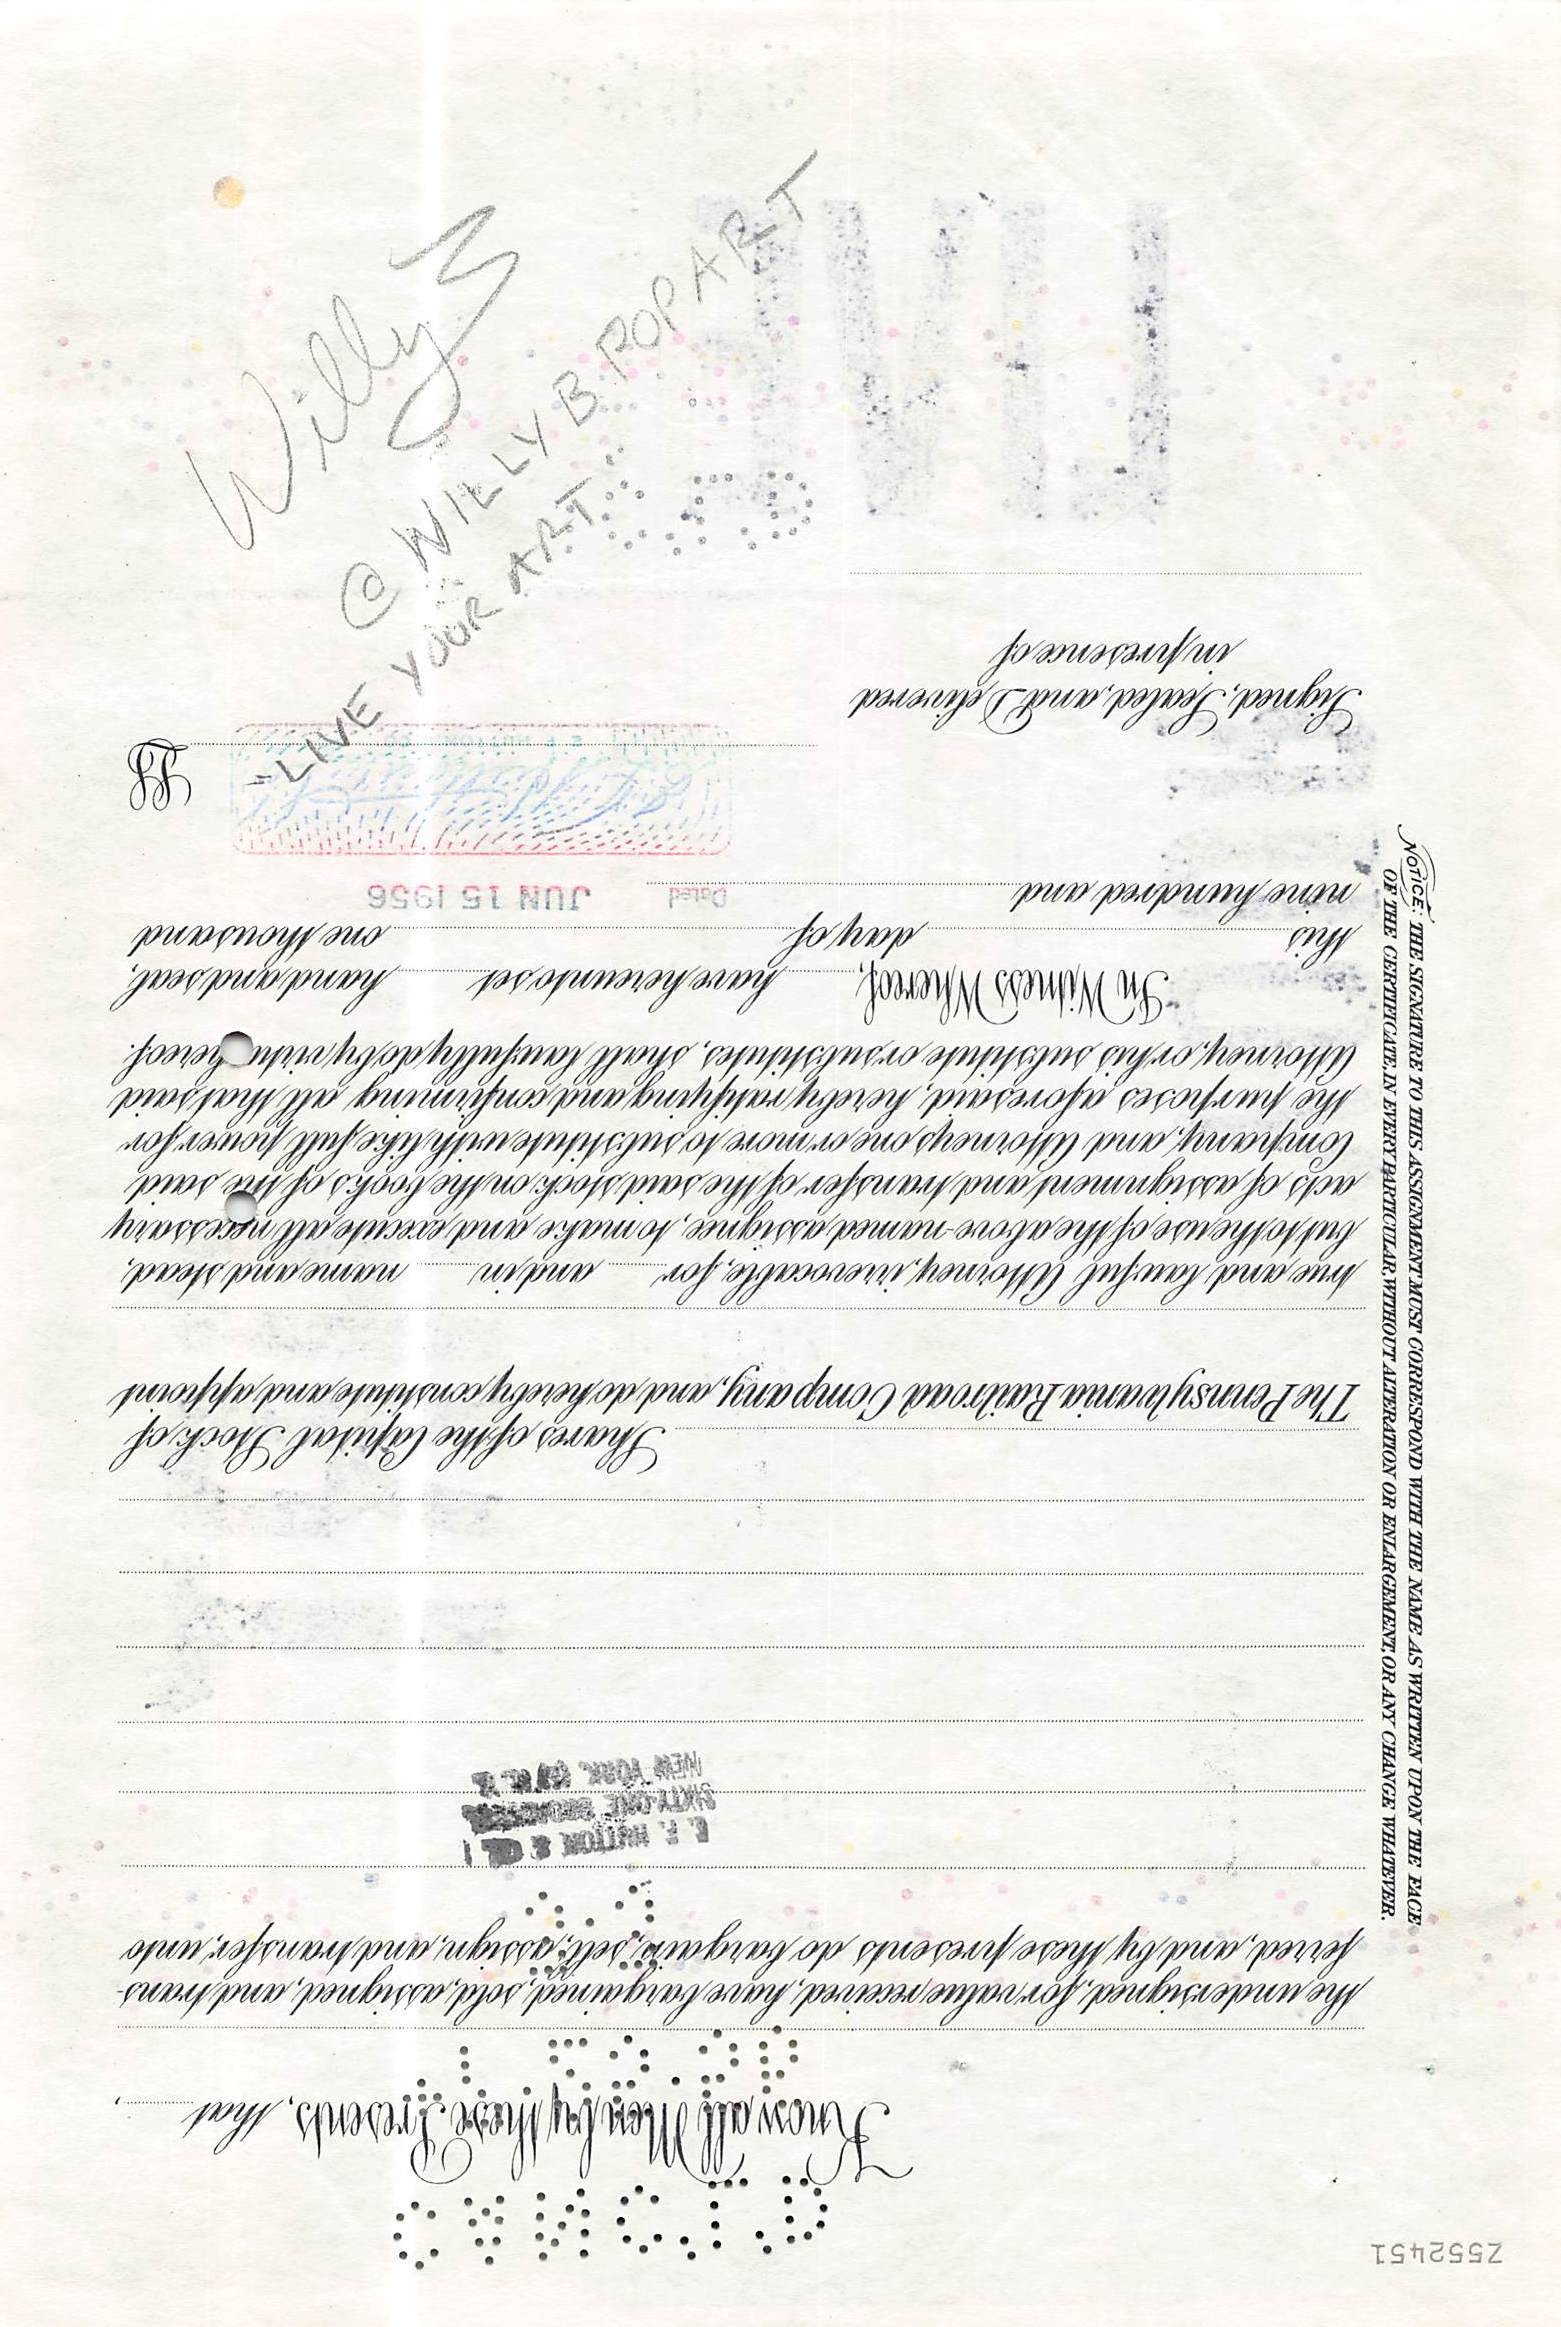 Z552451
Know all Men by these Presents, that
the undersigned, for value received, have bargained, sold, assigned, and trans-
ferred, and by these presents do bargain, sell, assign, and transfer, unto
E. F. HUTTON & CO.
SIXTY-ONE BROADWAY
NEW YORK
Shares of the Capital Stock of
The Pennsylvania Railroad Company, and do hereby constitute and appoint
true and lawful Attorney, irrevocable, for and in name and stead,
but to the use of the above-named assignee, to make and execute all necessary
acts of assignment and transfer of the said stock on the books of the said
Company, and Attorneys one or more to substitute with like full power for
the purposes aforesaid, hereby ratifying and confirming all that said
Attorney, or his substitute or substitutes, shall lawfully do by virtue hereof.
In Witness Whereof, have hereunto set hand and seal,
this day of one thousand
nine hundred and
Dated JUN 15 1956
Signed, Sealed, and Delivered
in presence of
NOTICE: THE SIGNATURE TO THIS ASSIGNMENT MUST CORRESPOND WITH THE NAME AS WRITTEN UPON THE FACE
OF THE CERTIFICATE, IN EVERY PARTICULAR, WITHOUT ALTERATION OR ENLARGEMENT, OR ANY CHANGE WHATEVER.
Willy B
@WILLYBPOPART
"LIVE YOUR ART"